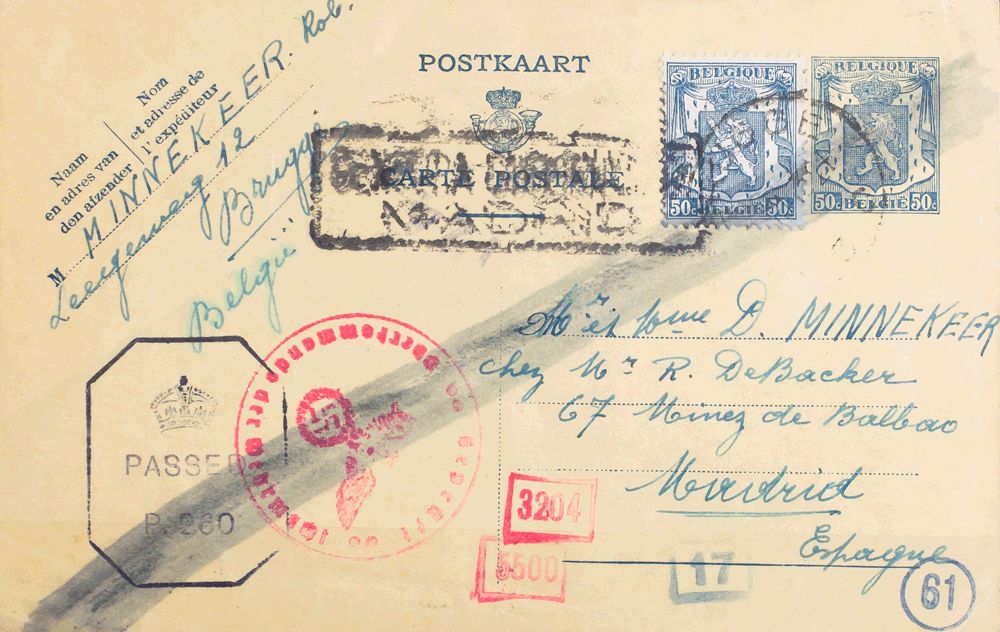 POSTKAART
CARTE POSTALE
Nom
et adresse de
l'expéditeur
Naam
en adres van
den afzender
M MINNEKEER. Rob.
Leegeweg 12
Brugge
België
BELGIQUE
50c BELGIË 50c
BELGIQUE
50c BELGIË 50c
MADRID
Mr et Mme D. MINNEKEER
chez Mr R. DeBacker
67 Minez de Balbao
Madrid
Espagne
PASSED
P. 260
Oberkommando der Wehrmacht
Geprüft
3204
5500
17
61